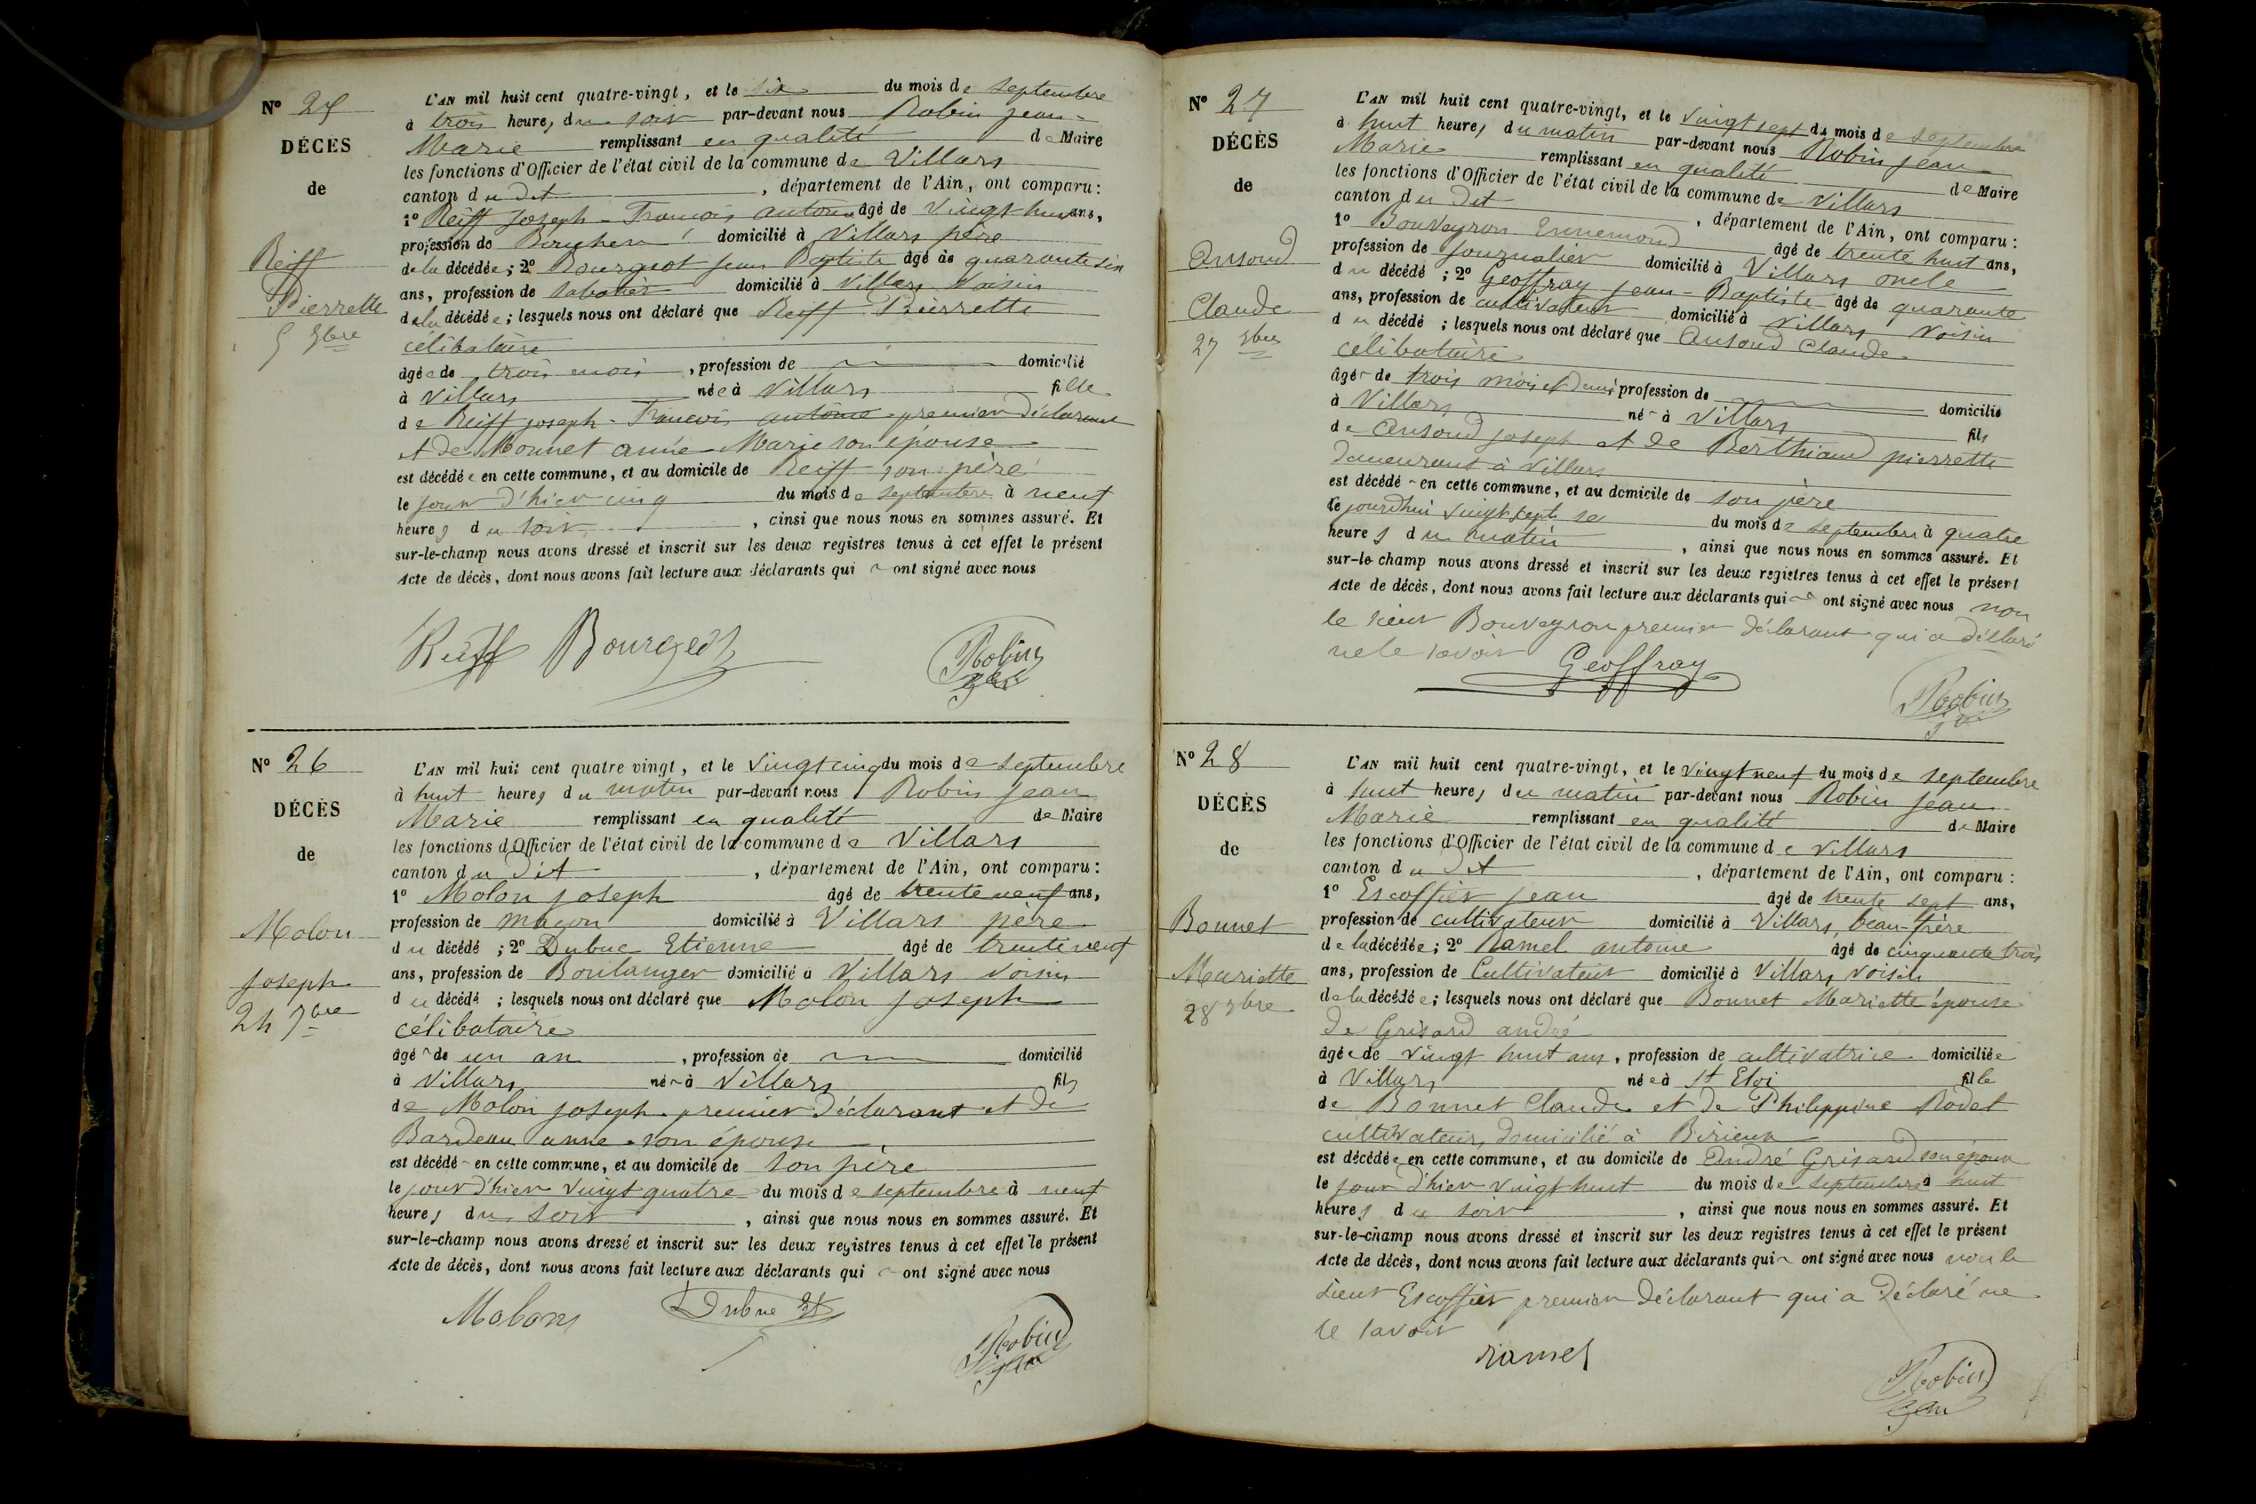 N° 25
DÉCÈS
de
Reiff
Pierrette
5 7bre
L'AN mil huit cent quatre-vingt, et le six du mois de septembre
à trois heures du soir par-devant nous Robin Jean-
Marie remplissant en qualité de Maire
les fonctions d'Officier de l'état civil de la commune de Villars
canton du dit, département de l'Ain, ont comparu :
1° Reiff Joseph-François antoine âgé de vingt-huit ans,
profession de domicilié à Villars père
de la décédée ; 2° Bourgeot Jean Baptiste âgé de quarante six
ans, profession de sabotier domicilié à Villars Voisin
de la décédée ; lesquels nous ont déclaré que Reiff Pierrette
célibataire
âgée de trois mois, profession de domicilié
à Villars née à Villars fille
de Reiff Joseph-François antoine premier déclarant
et de Monnet anne-Marie son épouse
est décédée en cette commune, et au domicile de Reiff son père
le jour d'hier cinq du mois de septembre à neuf
heures du soir, ainsi que nous nous en sommes assuré. Et
sur-le-champ nous avons dressé et inscrit sur les deux registres tenus à cet effet le présent
Acte de décès, dont nous avons fait lecture aux déclarants qui ont signé avec nous
Reiff Bourgeot Robin
N° 26
DÉCÈS
de
Molon
Joseph
24 7bre
L'AN mil huit cent quatre vingt, et le vingt cinq du mois de septembre
à huit heures du matin par-devant nous Robin Jean
Marie remplissant en qualité de Maire
les fonctions d'Officier de l'état civil de la commune de Villars
canton du dit, département de l'Ain, ont comparu :
1° Molon Joseph âgé de trente neuf ans,
profession de maçon domicilié à Villars père
du décédé ; 2° Dubuc Etienne âgé de trente neuf
ans, profession de Boulanger domicilié à Villars Voisin
du décédé ; lesquels nous ont déclaré que Molon Joseph
célibataire
âgé de un an, profession de domicilié
à Villars né à Villars fils
de Molon Joseph premier déclarant et de
Bardeau anne son épouse
est décédé en cette commune, et au domicile de son père
le jour d'hier vingt quatre du mois de septembre à neuf
heures du soir, ainsi que nous nous en sommes assuré. Et
sur-le-champ nous avons dressé et inscrit sur les deux registres tenus à cet effet le présent
Acte de décès, dont nous avons fait lecture aux déclarants qui ont signé avec nous
Molon Dubuc Robin
N° 27
DÉCÈS
de
Ansoud
Claude
27 7bre
L'AN mil huit cent quatre-vingt, et le vingt sept du mois de septembre
à huit heures du matin par-devant nous Robin Jean
Marie remplissant en qualité de Maire
les fonctions d'Officier de l'état civil de la commune de Villars
canton du dit, département de l'Ain, ont comparu :
1° Bouveyron Ennemond âgé de trente huit ans,
profession de journalier domicilié à Villars oncle
du décédé ; 2° Geoffray Jean-Baptiste âgé de quarante
ans, profession de cultivateur domicilié à Villars Voisin
du décédé ; lesquels nous ont déclaré que Ansoud Claude
célibataire
âgé de trois mois et demi profession de domicilié
à Villars né à Villars fils
de Ansoud Joseph et de Berthiaud pierrette
demeurant à Villars
est décédé en cette commune, et au domicile de son père
le jourdhui vingt sept du mois de septembre à quatre
heures du matin, ainsi que nous nous en sommes assuré. Et
sur-le-champ nous avons dressé et inscrit sur les deux registres tenus à cet effet le présent
Acte de décès, dont nous avons fait lecture aux déclarants qui ont signé avec nous non
le sieur Bouveyron premier déclarant qui a déclaré
ne le savoir
Geoffray Robin
N° 28
DÉCÈS
de
Bonnet
Mariette
28 7bre
L'AN mil huit cent quatre-vingt, et le vingt neuf du mois de septembre
à huit heures du matin par-devant nous Robin Jean
Marie remplissant en qualité de Maire
les fonctions d'Officier de l'état civil de la commune de Villars
canton du dit, département de l'Ain, ont comparu :
1° Escoffier Jean âgé de trente sept ans,
profession de cultivateur domicilié à Villars, beau-frère
de la décédée ; 2° Ramel antoine âgé de cinquante trois
ans, profession de Cultivateur domicilié à Villars voisin
de la décédée ; lesquels nous ont déclaré que Bonnet Mariette épouse
de Grisard andré
âgée de vingt huit ans, profession de cultivatrice domiciliée
à Villars née à St Eloi fille
de Bonnet Claude et de Philippine Rodet
cultivateurs domicilié à Birieux
est décédée en cette commune, et au domicile de André Grisard son époux
le jour d'hier vingt huit du mois de septembre à huit
heures du soir, ainsi que nous nous en sommes assuré. Et
sur-le-champ nous avons dressé et inscrit sur les deux registres tenus à cet effet le présent
Acte de décès, dont nous avons fait lecture aux déclarants qui ont signé avec nous non le
sieur Escoffier premier déclarant qui a déclaré ne
le savoir
ramel Robin